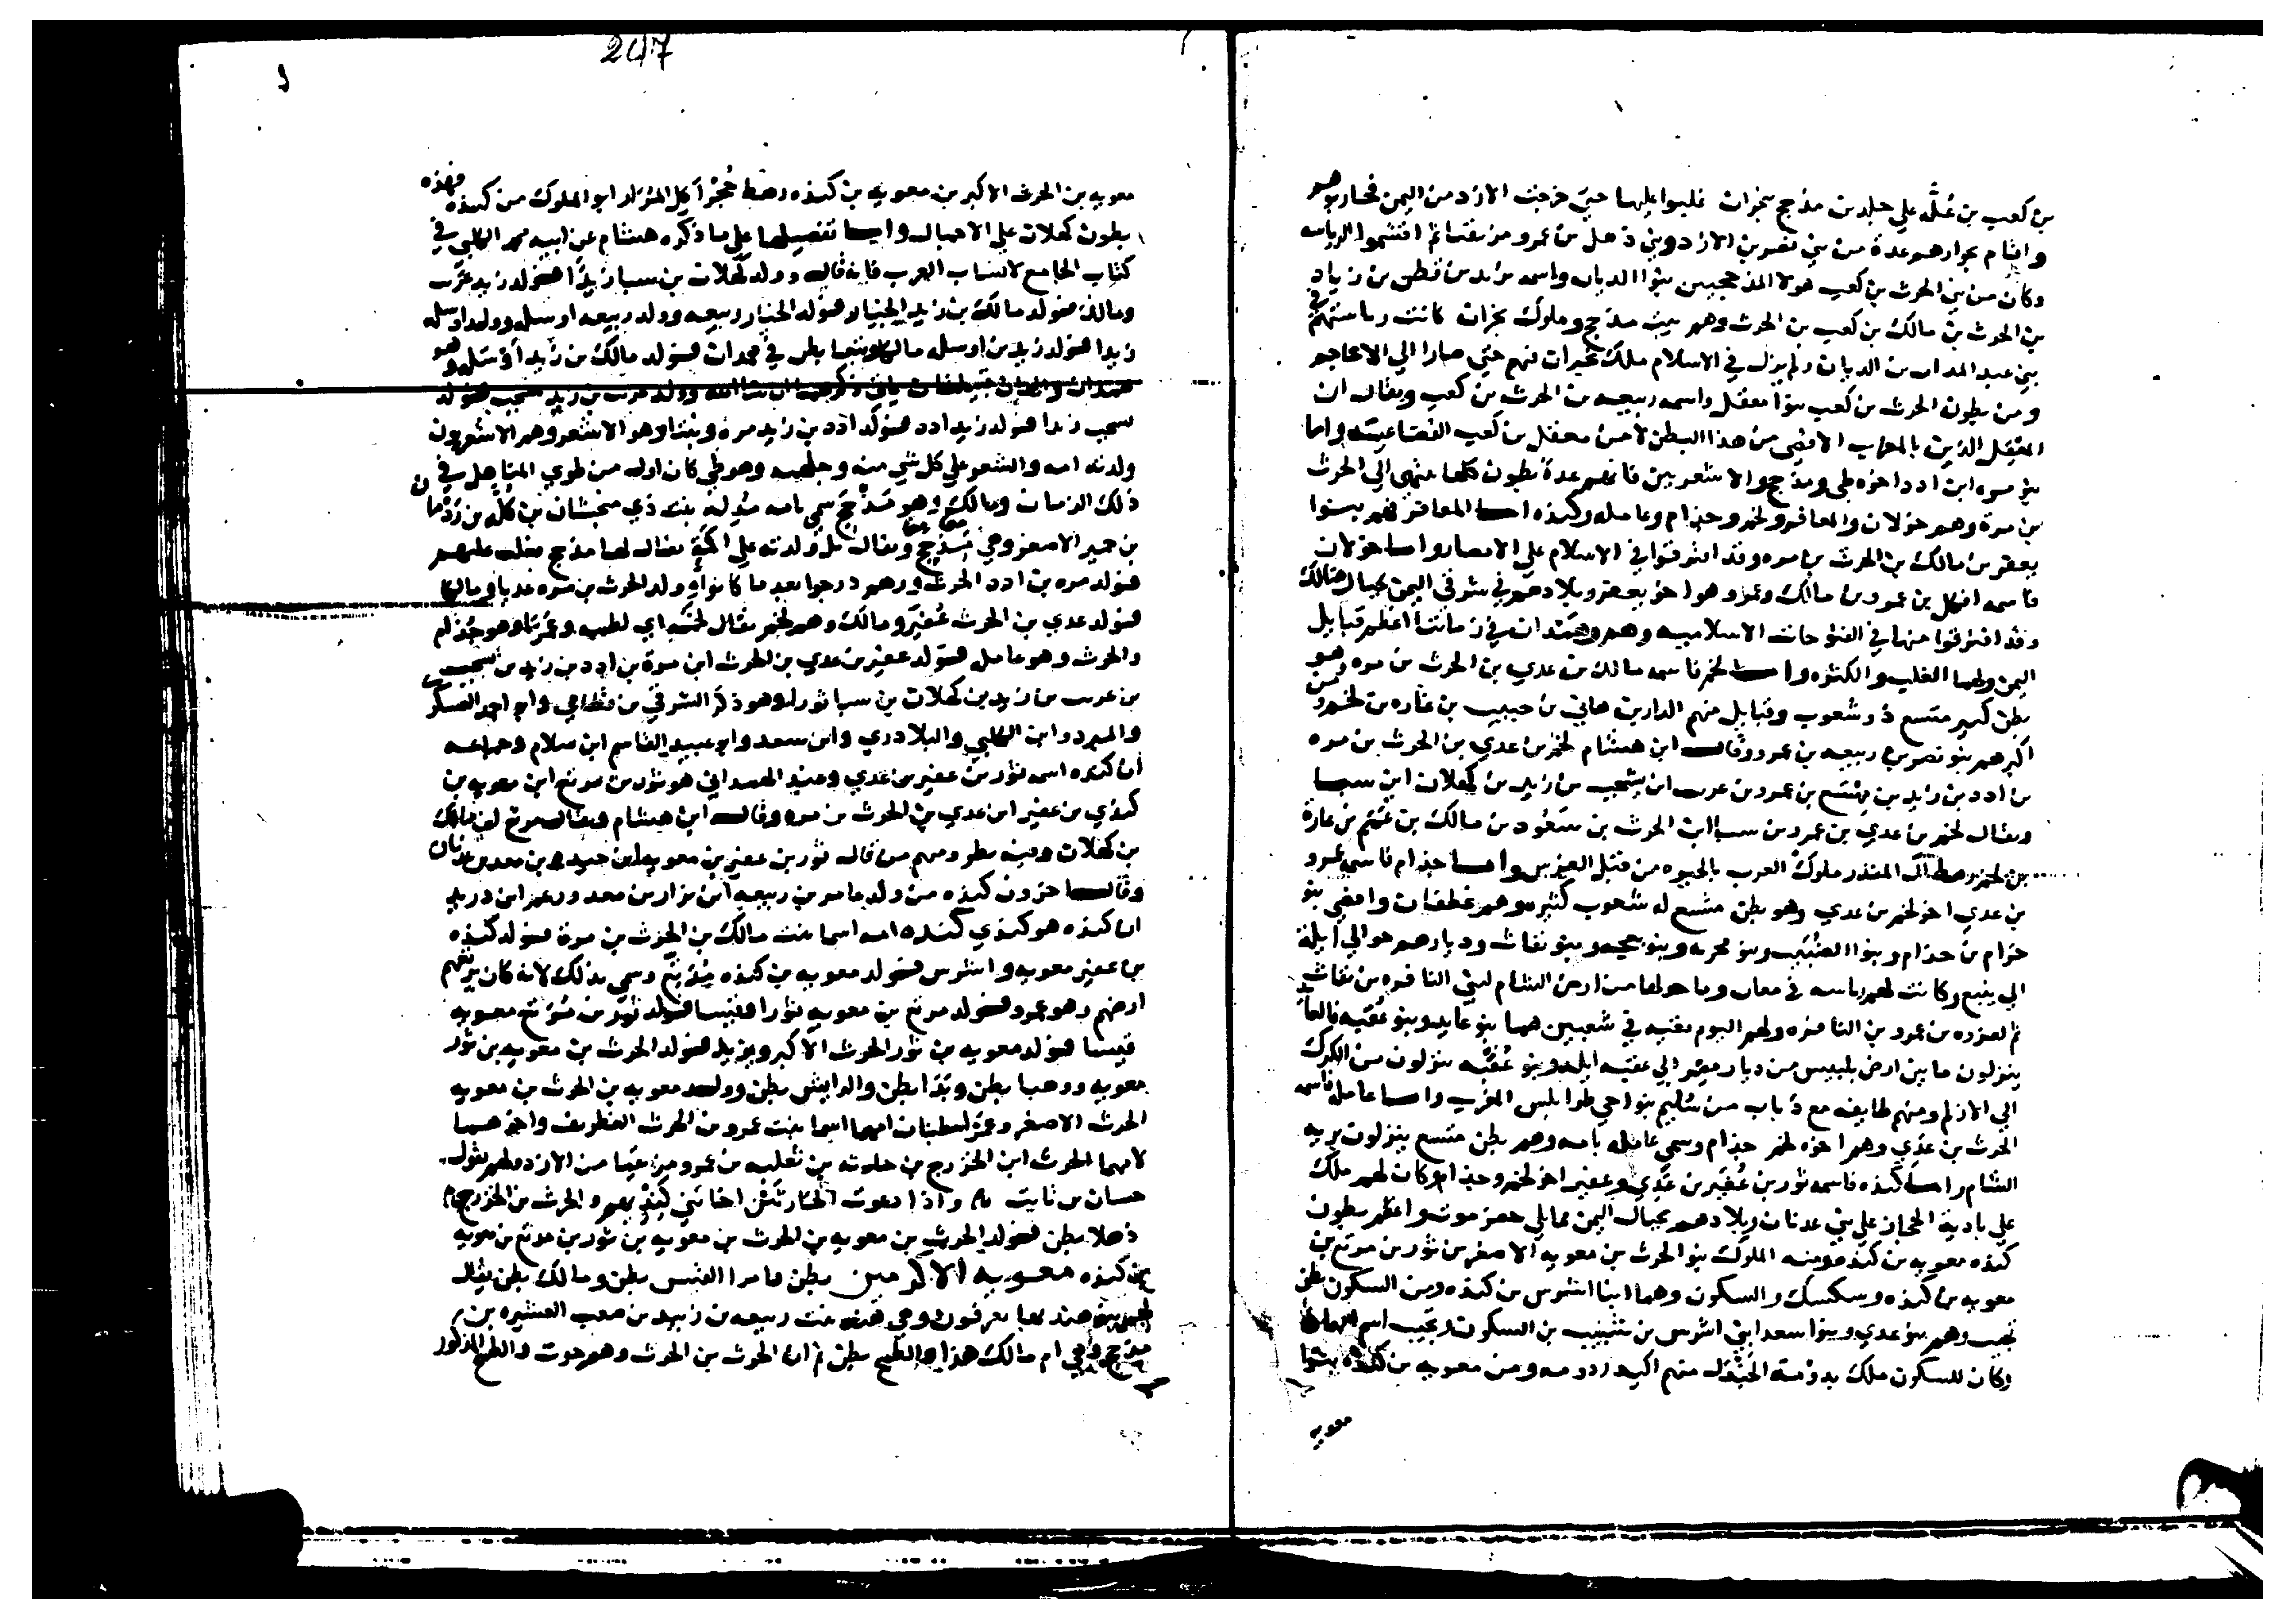 بن كعب بن عُلَّه على جلد بن مذحج بنجران غلبوا عليها حين خرجت الازد من اليمن فحاربوهم
واقام بجوارهم عدة من بني نصر بن الازد وبني ذهل بن عمرو مزيقيا ثم اقتسموا الرياسه
وكان من بني الحرث بن كعب هولا المذحجيين بنوا الديان واسمه يزيد بن قطن بن زياد
بن الحرث بن مالك بن كعب بن الحرث وهم بيت مذحج وملوك نجران كانت رياستهم في
بني عبد المدان بن الديان ولم يزل في الاسلام ملك نجران فيهم حتي صارا الي الاعاجم
ومن بطون الحرث بن كعب بنوا معقل واسمه ربيعه بن الحرث بن كعب ويقال ان
المعقل الذين بالمغرب الاقصي من هذا البطن لا من معقل بن كعب القضاعيين واما
بنو مره ابن ادد اخوه طي ومذحج والاشعريين فانهم عدة بطون كلها منتهى الي الحرث
بن مرة وهم خولان والمعافر ولخم وجذام وعامله وكنده اما المعافر فهم بنوا
يعفر بن مالك بن الحرث بن مره وقد افترقوا في الاسلام على الامصار واما خولان
فاسمه افكل بن عمرو بن مالك وعمرو هو اخو يعفر وبلادهم في شرقي اليمن بجبال هنالك
وقد افترقوا منها في الفتوحات الاسلاميه وهم وهمدان في زماننا اعظم قبايل
اليمن ولهما الغلب والكثره واما لخم فاسمه مالك بن عدي بن الحرث بن مره وهو
بطن كبير متسع ذو شعوب وقبايل منهم الدارين هاني بن حبيب بن نماره بن لخم ومن
اكبرهم بنو نصر بن ربيعه بن عمرو وقال ابن هشام لخم بن عدي بن الحرث بن مره
بن ادد بن زيد بن هميسع بن عمرو بن عرب ابن يشجب بن زيد بن كهلان ابن سبا
ويقال لخم بن عدي بن عمرو بن سبا ابن الحرث بن سعود بن مالك بن غنم بن نمارة
بن لخم رهط آل المنذر ملوك العرب بالحيره من قبل الفرس واما جذام فاسمه عمرو
بن عدي اخو لخم بن عدي وهو بطن متسع له شعوب كثيره وهم غطفان وافصي بنو
حرام بن جذام وبنوا الضبيب وبنو مخرمه وبنو بعجه وبنو نفاث وديارهم حوالي ايلة
الي ينبع وكانت لهم رياسه في معان وما حولها من ارض الشام لبني النافره بن نفاث
ثم لفروه بن عمرو بن النافره ولهم اليوم بقيه في شعبين هما بنو عايد وبنو عقبه
ينزلون ما بين ارض بلبيس من ديار مصر الي عقبه ايله وبنو عُقبَه ينزلون من الكرك
الي الازلم ومنهم طايفه مع ذباب من سُليم بنواحي طرابلس المغرب واما عامله فاسمه
الحرث بن عدي وهم اخوه لخم جذام وسمي عامله بامه وهم بطن متسع ينزلون بريه
الشام واما كنده فاسمه ثور بن عُفَير بن عَدِي وعفير اخو لخم وجذام وكان لهم ملك
على باديه الحجاز علي بني عدنان وبلادهم بجبال اليمن مما يلي حضرموت واعظم بطون
كنده معويه بن كنده ومنه الملوك بنو الحرث بن معويه الاصغر بن ثور بن مرتع بن
معويه بن كنده وسكسك والسكون وهما ابنا اشرس بن كنده ومن السكون بطن
تجيب وهم بنو عدي وبنوا سعد ابني اشرس بن شبيب بن السكون وتجيب اسم امهما
وكان للسكون ملك بدومة الجندل منهم اكيدر دومه ومن معويه بن كنده بنوا
معويه
247
معويه بن الحرث الاكبر بن معويه بن كنده رهط حُجْر آكل المُرَار ابو الملوك من كنده فهذه
بطون كهلان على الاجمال واما تفصيلها على ما ذكره هشام عن ابيه محمد الكلبي في
كتاب الجامع لانساب العرب فانه قال وولد كهلان بن سبا زيدًا فولد زيد عرب
ومالك فولد مالك بن زيد الخيار فولد الخيار ربيعه وولد ربيعه اوسله وولد اوسله
زيدا فولد زيد بن اوسله مالك وبنها بطن في همدان فولد مالك بن زيد اوسله وهو
همدان والهان قبيلتان ياتي ذكرهما ان شا الله وولد عرب بن زيد يشجب فولد
يشجب زيدا فولد زيد ادد فولد ادد بن زيد مره ونبتا وهو الاشعر وهم الاشعريون
ولدته امه والشعر على كل شي منه وجلهمه وهو طي كان اول من طوي المناهل في
ذلك الزمان ومالك وهو مَذحج سمي بامه مُدِله بنت ذي منجشان بن كله بن رَدْمان
بن حمير الاصغر وهي مَذحِج ويقال بل ولدته على اكَمَةٍ يقال لها مذحج فغلب عليهم
فولد مره بن ادد الحرث ورهم درجوا بعد ما كانوا وولد الحرث بن مره عديا ومالكا
فولد عدي بن الحرث عُفَير ومالك وهو لخم يقال لخمه اي لطمه وعمرًا وهو جُذام
والحرث وهو عامله فولد عفير بن عدي بن الحرث ابن مرة بن ادد بن زيد بن يشجب
بن عرب بن زيد بن كهلان بن سبا ثورا وهو ذكر الشرقي بن قطامي وابو احمد العسكري
والمبرد وابن الكلبي والبلادري وابن سعد وابو عبيد القاسم ابن سلام وجماعه
ان كنده اسمه ثور بن عفير بن عدي وعند الهمداني هو ثور بن مرتع ابن معويه بن
كندي بن عفير ابن عدي بن الحرث بن مره وقال ابن هشام ويقال مرتع ابن مالك
بن كهلان وفيه نظر ومنهم من قال ثور بن عفير بن معويه ابن حيده بن معد بن عدنان
وقال اخرون كنده من ولد عامر بن ربيعه ابن نزار بن معد وزعم ابن دريد
ان كنده هو كندي كنده امه اسما بنت مالك بن الحرث بن مرة فولد كنده
بن عفير معويه واشرس فولد معويه بن كنده مُرْتِعٌ وسمي بذلك لانه كان يرتعهم
ارضهم وهو عمرو فولد مرتع بن معويه ثورا وقيسا فولد ثور بن مُرَتع معويه
قيسا فولد معويه بن ثور الحرث الاكبر ويزيد فولد الحرث بن معويه بن ثور
معويه ووهبا بطن وبَدّا بطن والرايش بطن وولد معويه بن الحرث بن معويه
الحرث الاصغر وعمرًا بطنان امهما اسما بنت عمرو بن الحرث الغطريف واخوهما
لامهما الحرث ابن الخزرج بن حارثه بن ثعلبه بن عمرو مزيقيا من الازد ولهم يقول
حسان بن ثابت واذا دعوت الحار اخا بني كنده عمرو الحرث بن الخزرج
ذهلا بطن فولد الحرث بن معويه بن الحرث بن معويه بن ثور بن مرتع بن معويه
بن كنده معويه الاكرمين بطن وامرا القيس بطن ومالك بطن يقال
لهم بنو هند بها يعرفون وهي هند بنت ربيعه بن زبيد بن صعب العشيره بن
مذحج وهي ام مالك هذا والطمح بطن ثم ان الحرث بن الحرث وهو حوت والطمح المذكور